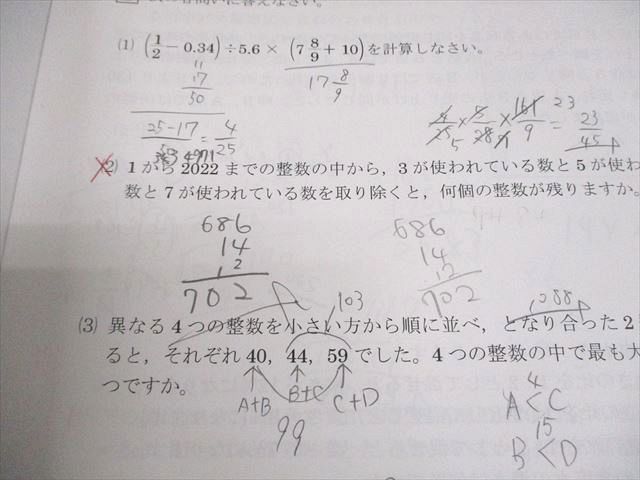 の各問いに答えなさい。
(1) (1/2 − 0.34) ÷ 5.6 × (7 8/9 + 10) を計算しなさい。
17/50
17 8/9
25−17/50 = 4/25
4/25 × 5/28 × 161/9 = 23/45
(2) 1から2022までの整数の中から，3が使われている数と5が使わ
数と7が使われている数を取り除くと，何個の整数が残りますか。
686 686
14 14
12 12
702 702
103 1088
(3) 異なる4つの整数を小さい方から順に並べ，となり合った2
ると，それぞれ40，44，59でした。4つの整数の中で最も大
つですか。
A+B B+C C+D
99
4
A<C
15
B<D